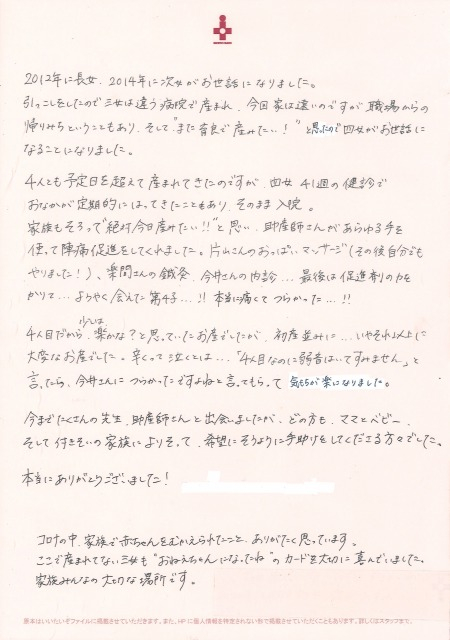 2012年に長女、2014年に次女がお世話になりました。
引っこしをしたので三女は違う病院で産まれ、今回家は遠いのですが職場からの
帰りみちということもあり、そして"また育良で産みたい!"と思ったので四女がお世話に
なることになりました。
4人とも予定日を超えて産まれてきたのですが、四女41週の健診で
おなかが定期的にはってきたこともあり、そのまま入院。
家族もそろって"絶対今日産みたい!!"と思い、助産師さんがあらゆる手を
使って陣痛促進をしてくれました。片山さんのおっぱいマッサージ(その後自分でも
やりました!)、楽間さんの鍼灸、今井さんの内診...最後は促進剤の力を
かりて...ようやく会えた第4子...!!本当に痛くてつらかった...!!
4人目だから少しは楽かな?と思っていたお産でしたが、初産並みに...いやそれ以上に
大変なお産でした。辛くって泣くとは..."4人目なのに弱音はいてすみません"と
言ったら、今井さんにつらかったですよねと言ってもらって気もちが楽になりました。
今までたくさんの先生、助産師さんと出会いましたが、どの方も、ママとベビー、
そして付きそいの家族によりそって、希望にそうように手助けをしてくださる方々でした。
本当にありがとうございました!
コロナの中、家族で赤ちゃんをむかえられたこと、ありがたく思っています。
ここで産まれてない三女も"おねえちゃんになったね"のカードを大切に喜んでいました。
家族みんなの大切な場所です。
原本はいいたいそファイルに掲載させていただきます。また、HPに個人情報を特定されない形で掲載させていただくこともあります。詳しくはスタッフまで。